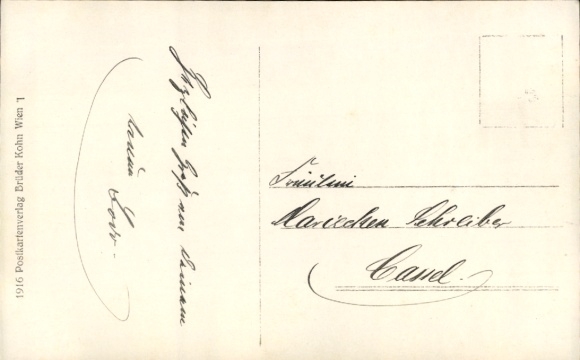 1916 Postkartenverlag Brüder Kohn Wien 1
Herzlichen Gruß von
Fräulein
Mariechen Schreiber
Cassel.